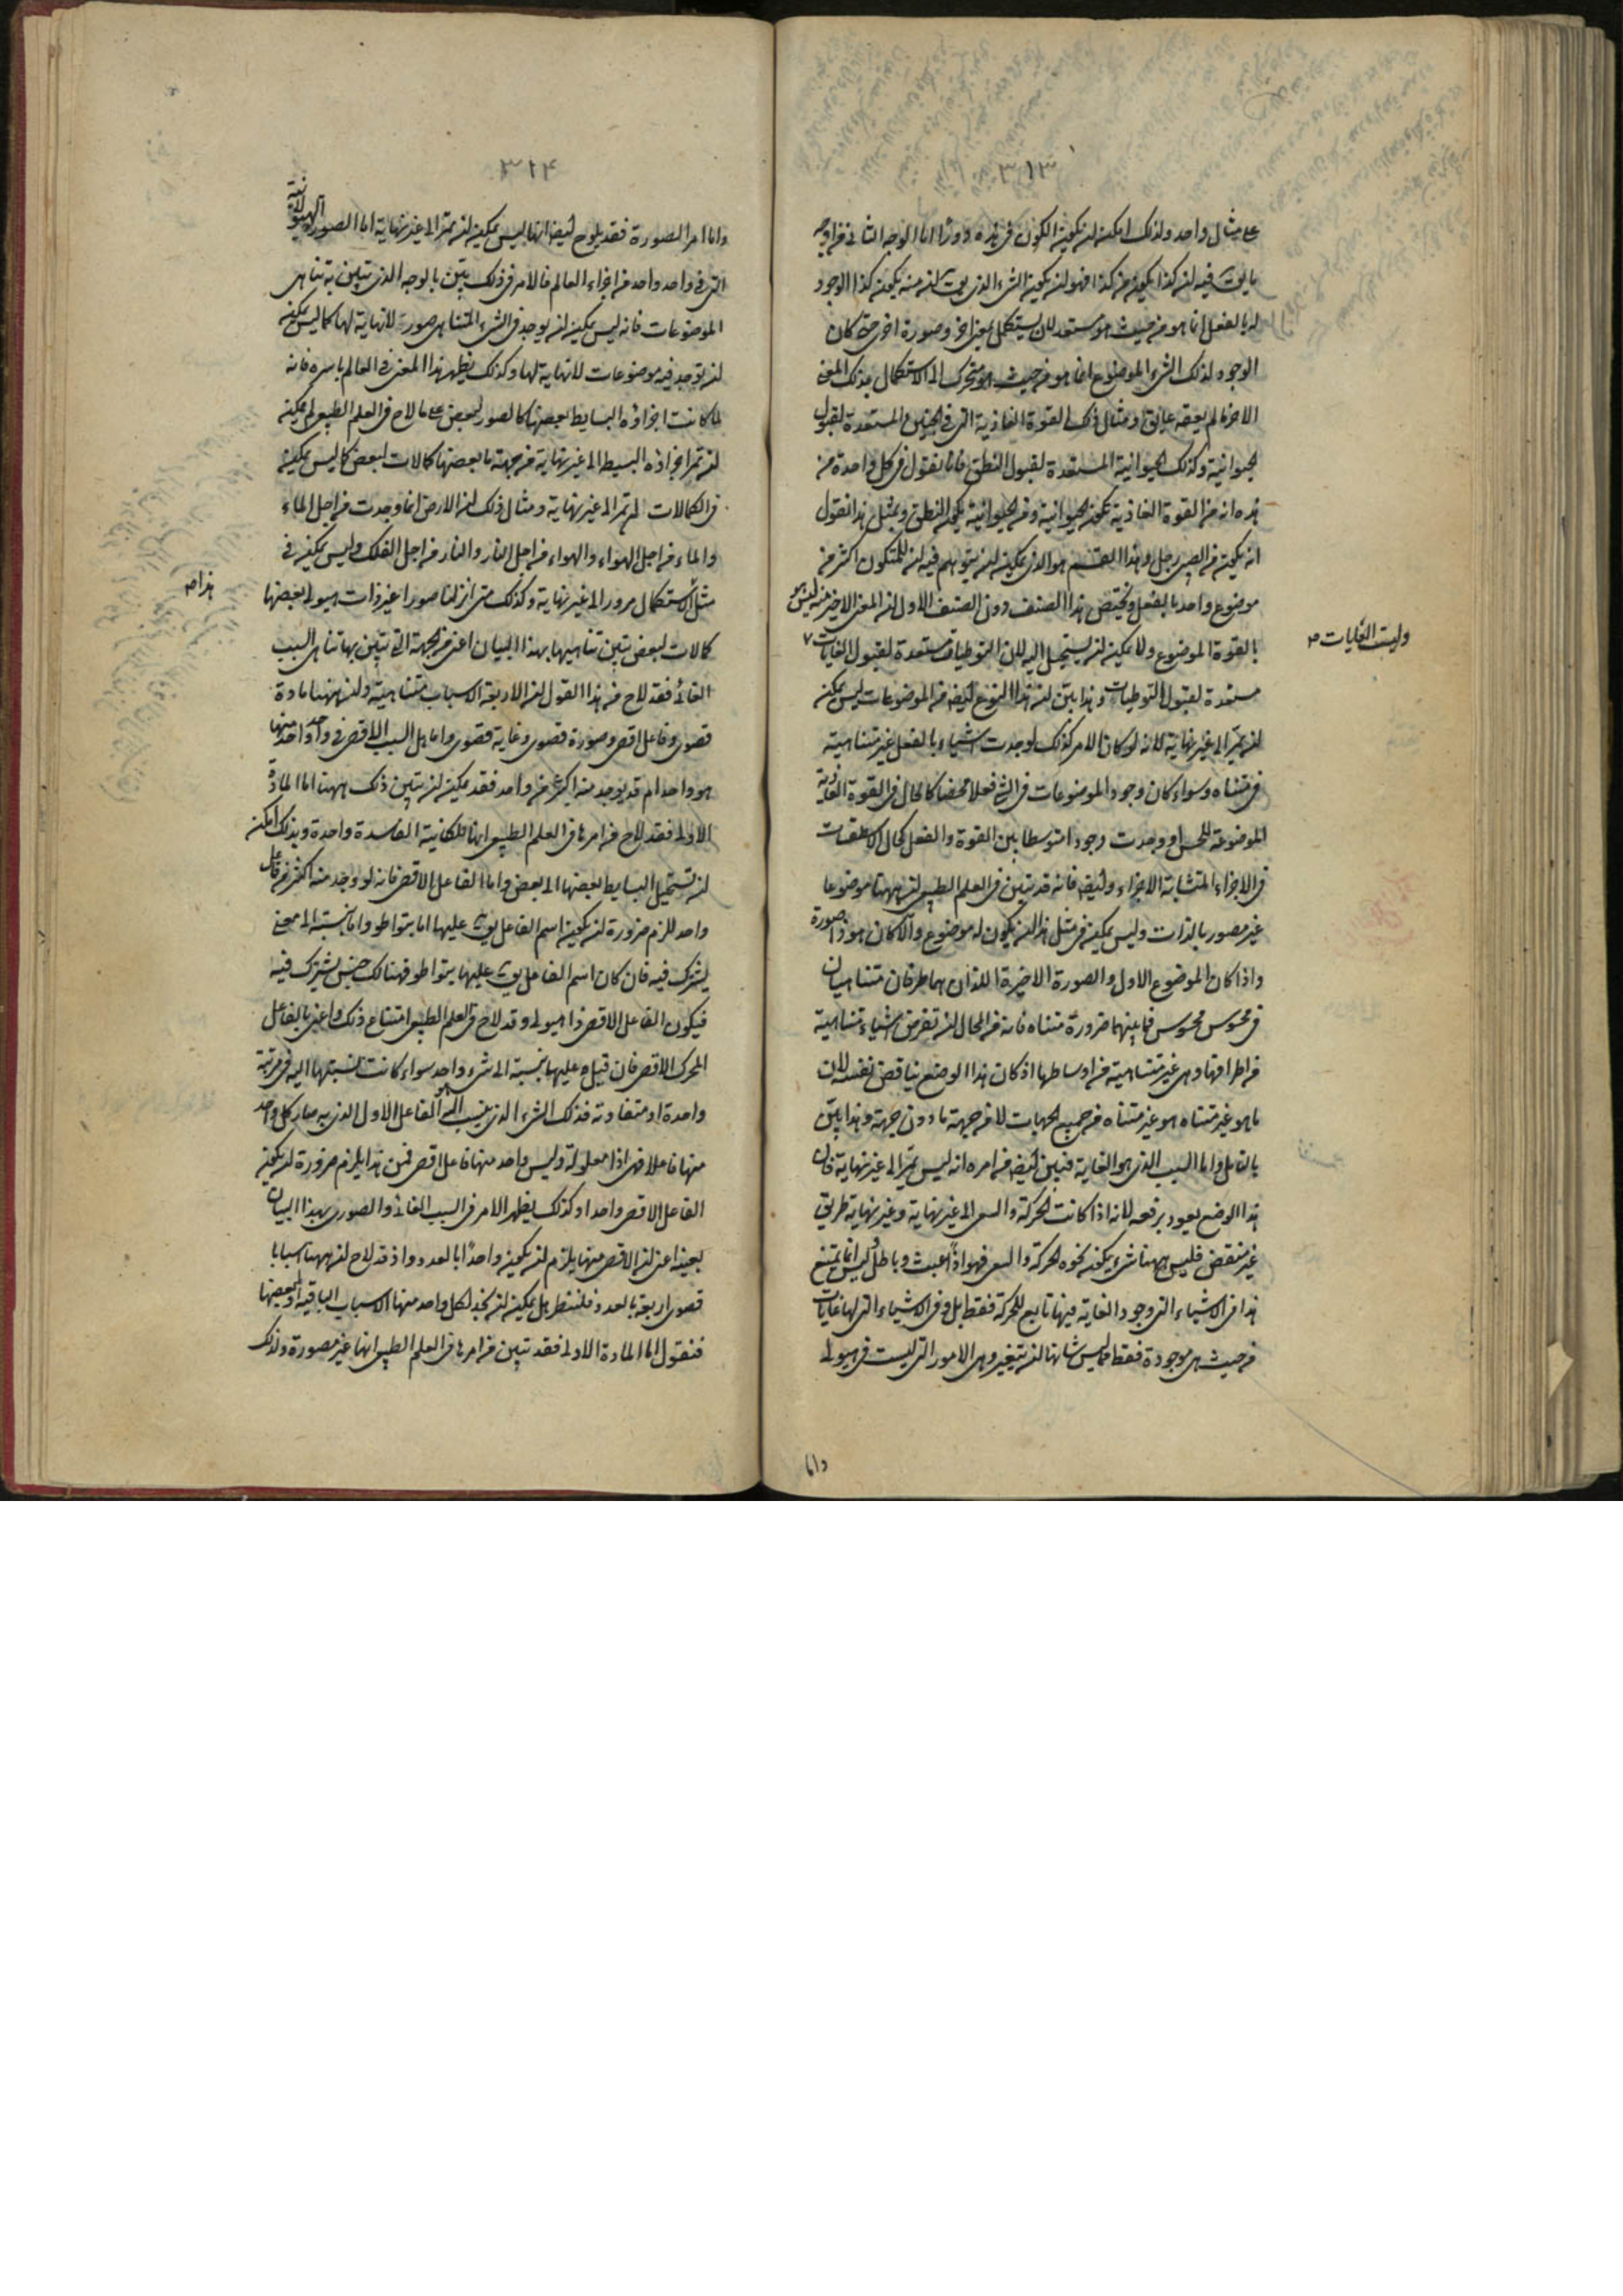 ٣١٣
على مثال واحد ولذلك امكن ان يكون الكون في هذه دورا اما الوجه الثاني من اوجه
ما يق فيه ان كذا يكون من كذا فهو ان يكون الشيء الذي يق انه منه يكون كذا الوجود
له بالفعل انما هو من حيث هو مستعد لان يستكمل بمعنى اخر وصورة اخرى حتى كان
الوجود لذلك الشيء الموضوع انما هو من حيث هو متحرك الى الاستكمال بذلك المعنى
الاخر ما لم يعقه عايق ومثال ذلك القوة الغاذية التي في الجنين المستعدة لقبول
الحيوانية وكذلك الحيوانية المستعدة لقبول النطق فانا نقول في كل واحدة من
هذه انه من القوة الغاذية تكون الحيوانية ومن الحيوانية يكون النطق وبمثل هذا نقول
انه يكون من الصبي رجل وهذا القسم هو الذي يمكن ان يتوهم فيه ان للمتكون اكثر من
موضوع واحد بالفعل ويختص هذا الصنف دون الصنف الاول ان المعنى الاخير منه ليس هو
بالقوة الموضوع ولا يمكن ان يستحيل اليه لان التوطيات مستعدة لقبول الغايات
وليست الغايات
مستعدة لقبول التوطيات وهذا بين ان هذا النوع ايضا من الموضوعات ليس يمكن
ان يمر الى غير نهاية لانه لو كان الامر كذلك لوجدت اشياء بالفعل غير متناهية
في متناه وسواء كان وجود الموضوعات في الشيء فعلا محضا كالحال في القوة الغاذية
الموضوعة للحس او وجدت وجودا متوسطا بين القوة والفعل كحال الاسطقسات
في الاجزاء المتشابهة الاجزاء وايضا فانه قد تبين في العلم الطبيعي ان ههنا موضوعا
غير مصور بالذات وليس يمكن في مثل هذا ان يكون له موضوع والا كان هو ذا صورة
واذا كان الموضوع الاول والصورة الاخيرة اللذان هما طرفان متناهيان
في محسوس محسوس فما بينهما ضرورة متناه فانه من المحال ان تفرض اشياء متناهية
من اطرافها وهي غير متناهية من اوساطها اذ كان هذا الوضع يناقض نفسه لان
ما هو غير متناه هو غير متناه من جميع الجهات لا من جهة ما دون جهة وهذا بين
بالتامل واما السبب الذي هو الغاية فبين ايضا من امره انه ليس يمر الى غير نهاية فان
هذا الوضع يعود برفعه لانه اذا كانت الحركة والسعي الى غير نهاية وغير نهاية طريق
غير منقض فليس ههنا شيء يكون نحوه الحركة والسعي فهو اذا عبث وباطل وليس انما يمتنع
هذا في الاشياء التي وجود الغاية فيها تابع للحركة فقط بل وفي الاشياء التي لها غايات
من حيث هي موجودة فقط مما ليس شانها ان يتغير وهي الامور التي ليست في هيولى
واما
٣١٤
واما امر الصورة فقد يلوح ايضا انها ليس يمكن ان تمر الى غير نهاية اما الصور الهيولانية
التي في واحد واحد من اجزاء العالم فالامر في ذلك بين بالوجه الذي تبين به تناهي
الموضوعات فانه ليس يمكن ان يوجد في الشيء المتناهي صور لا نهاية لها كما ليس يمكن
ان توجد فيه موضوعات لا نهاية لها وكذلك يظهر هذا المعنى في العالم باسره فانه
لما كانت اجزاؤه البسايط بعضها كالصور لبعض على ما لاح في العلم الطبيعي لم يمكن
ان تمر اجزاؤه البسيطة الى غير نهاية من جهة ما بعضها كمالات لبعض كما ليس يمكن
في الكمالات ان تمر الى غير نهاية ومثال ذلك ان الارض انما وجدت من اجل الماء
والماء من اجل الهواء والهواء من اجل النار والنار من اجل الفلك وليس يمكن في
مثل هذا الاستكمال مرور الى غير نهاية وكذلك متى انزلنا صورا غير ذات هيولى بعضها
كمالات لبعض تبين تناهيها بهذا البيان اعني من الجهة التي تبين بها تناهي السبب
الغائي فقد لاح من هذا القول ان الاربعة الاسباب متناهية وان ههنا مادة
قصوى وفاعل اقصى وصورة قصوى وغاية قصوى واما هل السبب الاقصى في واحد واحد منها
هو واحد ام قد يوجد منه اكثر من واحد فقد يمكن ان يتبين ذلك ههنا اما المادة
الاولى فقد لاح من امرها في العلم الطبيعي انها للكائنة الفاسدة واحدة وبذلك امكن
ان تستحيل البسايط بعضها الى بعض واما الفاعل الاقصى فانه لو وجد منه اكثر من فاعل
واحد للزم ضرورة ان يكون اسم الفاعل يق عليها اما بتواطو واما بنسبة الى معنى
يشترك فيه فان كان اسم الفاعل يق عليها بتواطو فهنالك جنس يشترك فيه
فيكون الفاعل الاقصى ذا هيولى وقد لاح في العلم الطبيعي امتناع ذلك واعني بالفاعل
المحرك الاقصى فان قيل عليها بنسبة الى شيء واحد سواء كانت نسبتها اليه في مرتبة
واحدة او متفاوتة فذلك الشيء الذي ينسب اليه هو الفاعل الاول الذي به صار كل واحد
منها فاعلا فهي اذا معلولة وليس واحد منها فاعل اقصى فمن هذا يلزم ضرورة ان يكون
الفاعل الاقصى واحدا وكذلك يظهر الامر في السبب الغائي والصوري بهذا البيان
بعينه اعني ان الاقصى منها يلزم ان يكون واحدا بالعدد واذ قد لاح ان ههنا اسبابا
قصوى اربعة بالعدد فلننظر هل يمكن ان نجد لكل واحد منها الاسباب الباقية او بعضها
فنقول اما المادة الاولى فقد تبين من امرها في العلم الطبيعي انها غير مصورة ولذلك